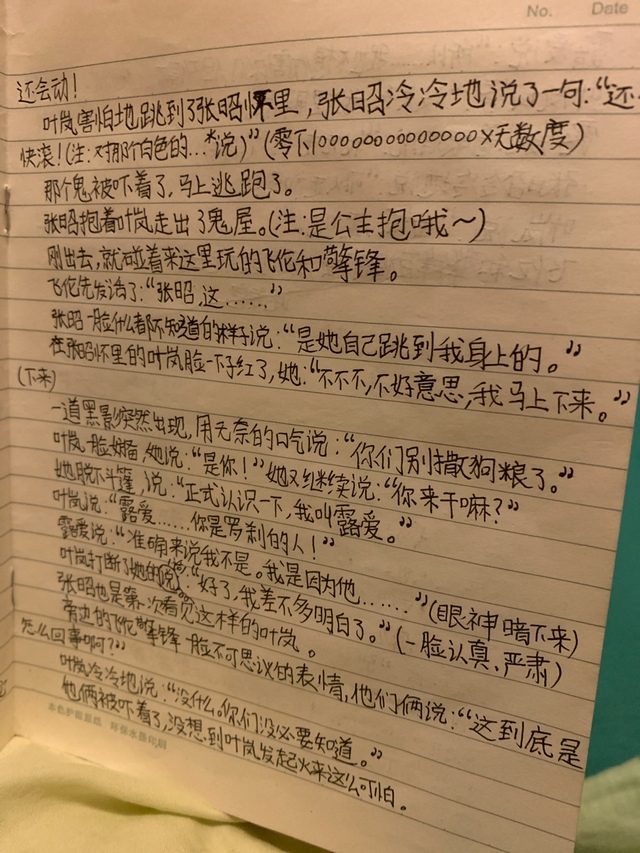 No. Date
还会动！
叶岚害怕地跳到了张昭怀里，张昭冷冷地说了一句：“还
快滚！(注：对那个白色的…*说)”(零下1000000000000000×无数度)
那个鬼被吓着了，马上逃跑了。
张昭抱着叶岚走出了鬼屋。(注：是公主抱哦～)
刚出去，就碰着来这里玩的飞伦和擎锋。
飞伦先发话了：“张昭，这……”
张昭一脸什么都不知道的样子说：“是她自己跳到我身上的。”
在张昭怀里的叶岚脸一下子红了，她：“不不不，不好意思，我马上下来。”
(下来)
一道黑影突然出现，用无奈的口气说：“你们别撒狗粮了。”
叶岚一脸，她说：“是你！”她又继续说：“你来干嘛？”
她脱下斗篷，说：“正式认识一下，我叫露爱。”
叶岚说：“露爱……你是罗刹的人！”
露爱说：“准确来说我不是。我是因为他……”(眼神暗下来)
叶岚打断了她的说：“好了，我差不多明白了。”(一脸认真、严肃)
张昭也是第一次看见这样的叶岚。
旁边的飞伦擎锋一脸不可思议的表情，他们俩说：“这到底是
怎么回事啊？”
叶岚冷冷地说：“没什么。你们没必要知道。”
他俩被吓着了，没想到叶岚发起火来这么可怕。
本色护眼原纸 环保水墨印刷